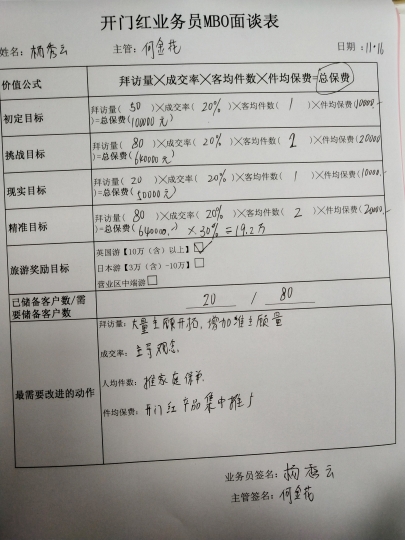 开门红业务员MBO面谈表
姓名：杨秀云 主管：何金花 日期：11.16
价值公式 拜访量╳成交率╳客均件数╳件均保费=总保费
初定目标 拜访量( 50 )╳成交率( 20% )╳客均件数( 1 )╳件均保费(10000.-
)=总保费(100000元)
挑战目标 拜访量( 80 )╳成交率( 20% )╳客均件数( 2 )╳件均保费(20000
)=总保费(640000元)
现实目标 拜访量( 20 )╳成交率( 20% )╳客均件数( 1 )╳件均保费(10000.-
)=总保费(
0000元)
精准目标 拜访量( 80 )╳成交率( 20% )╳客均件数( 2 )╳件均保费(20000.-
)=总保费(640000.-) ×30% =19.2万
旅游奖励目标 英国游【10万(含)以上】☑
日本游【3万(含)-10万】□
营业区中端游□
已储备客户数/需要储备客户数 20 / 80
最需要改进的动作
拜访量：大量主顾开拓，增加准主质量
成交率：主导观念
人均件数：推家庭保单
件均保费：开门红产品集中推广
业务员签名：杨秀云
主管签名：何金花